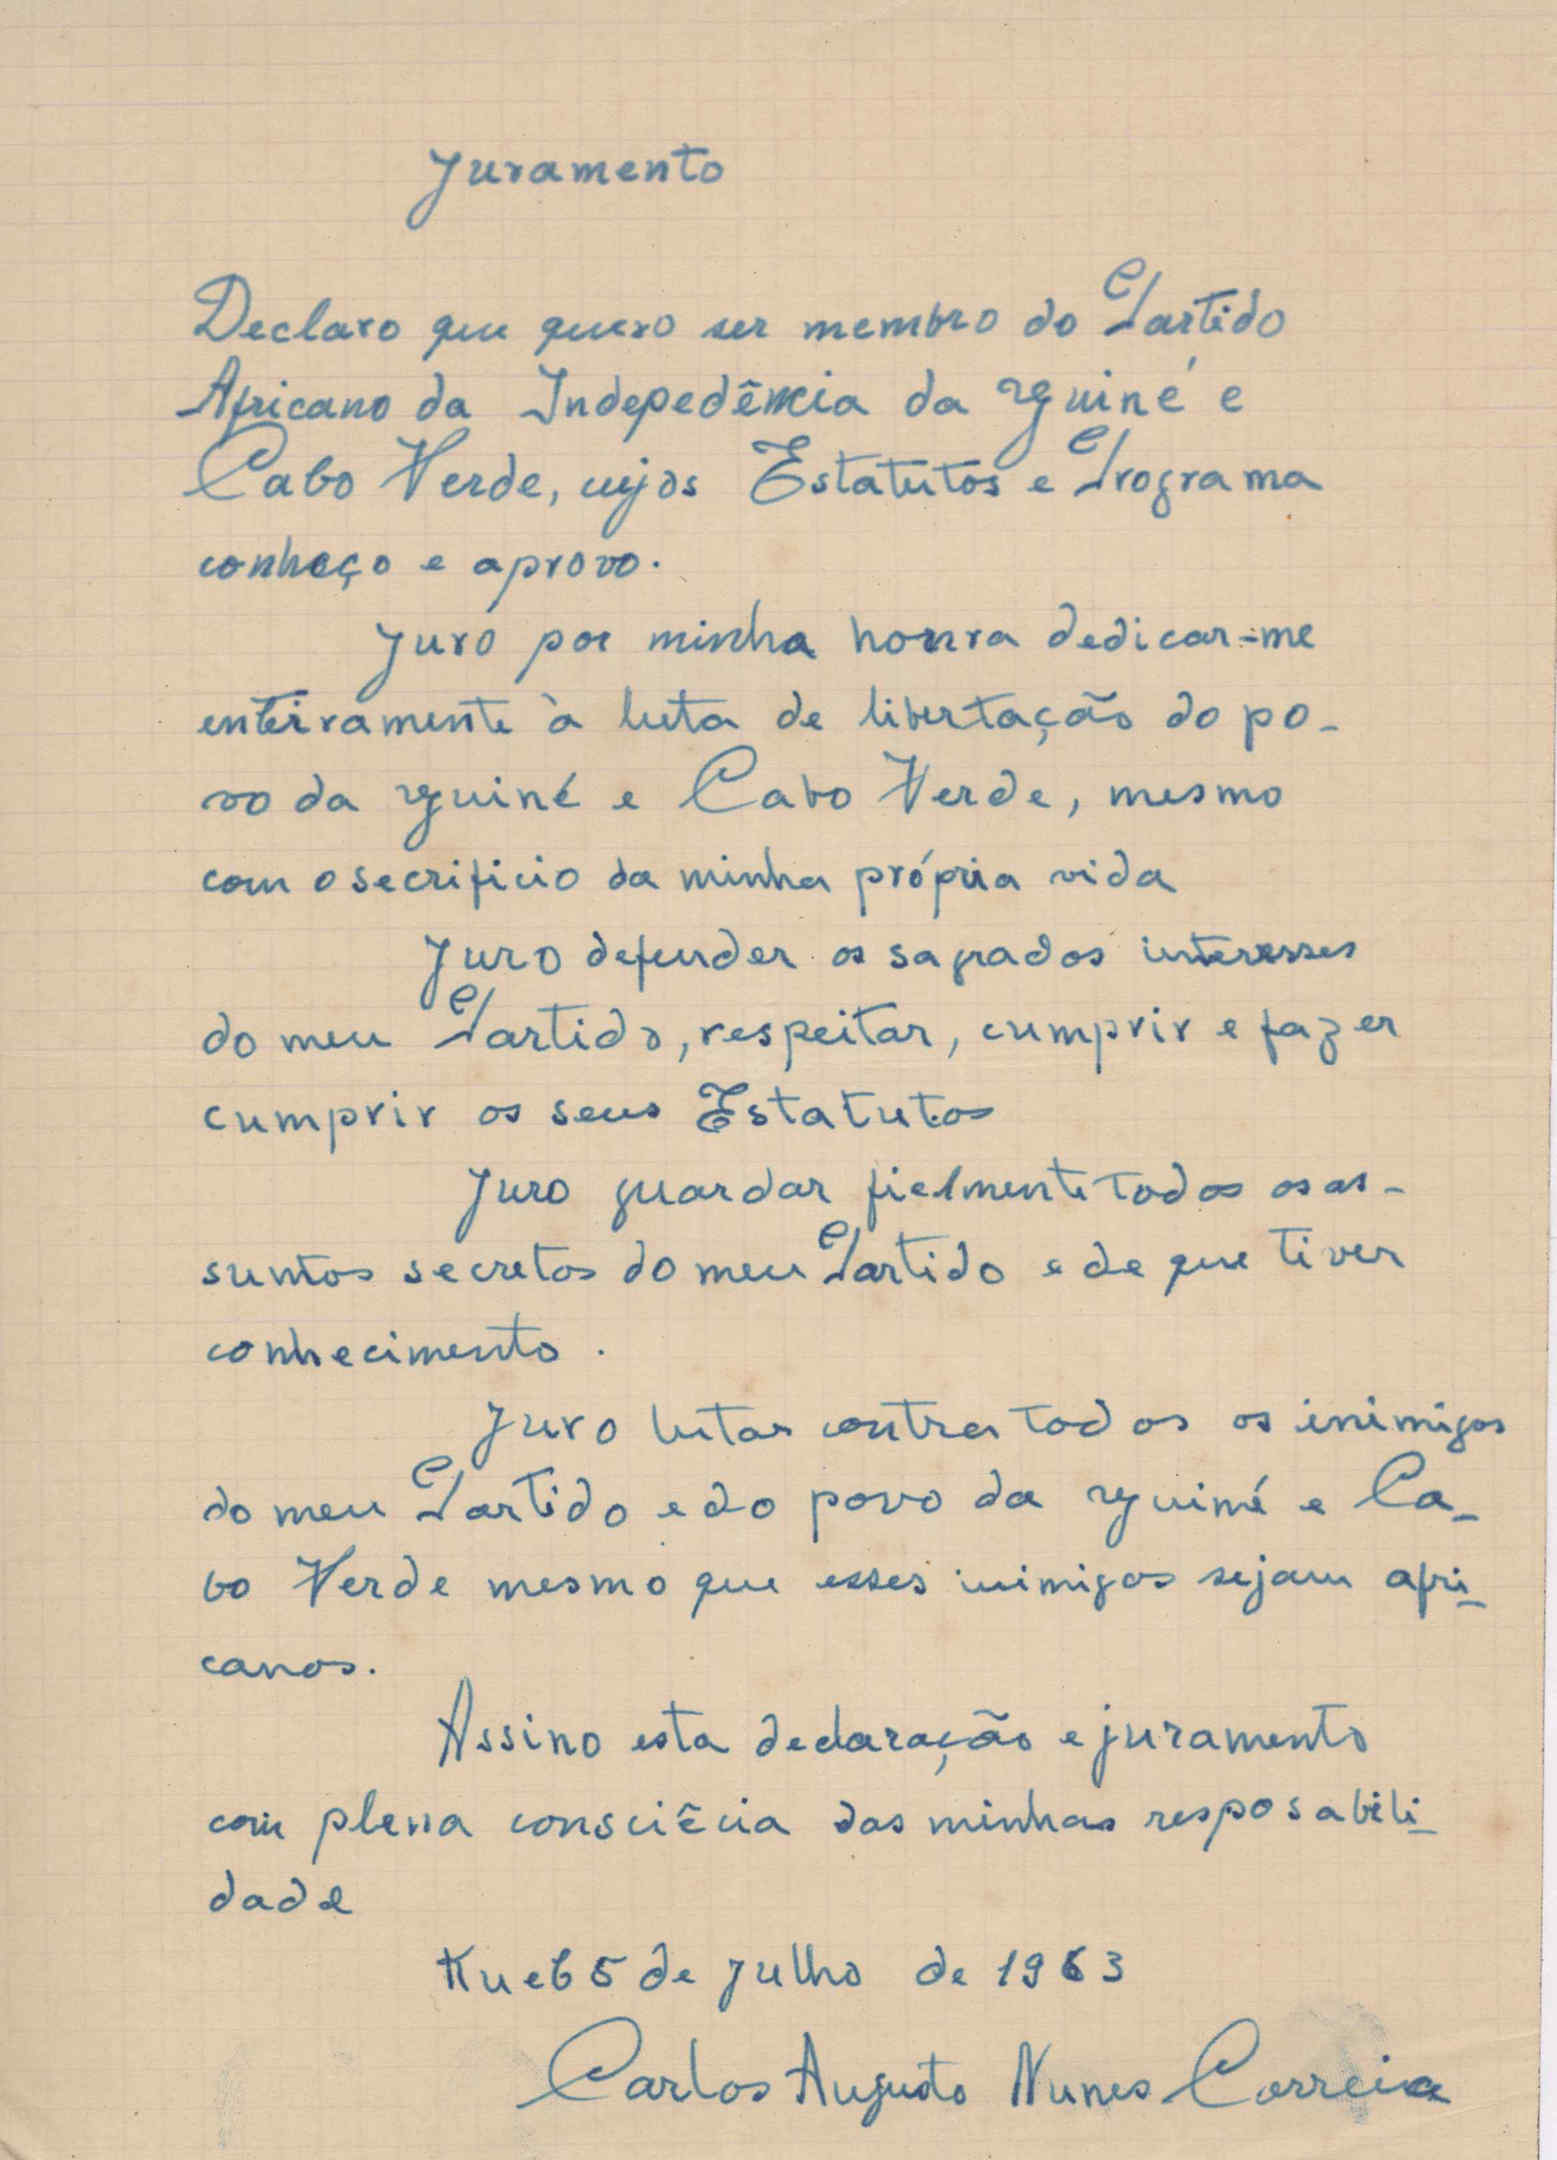 Juramento
Declaro que quero ser membro do Partido
Africano da Indepedência da Guiné e
Cabo Verde, cujos Estatutos e Programa
conheço e aprovo.
Juro por minha honra dedicar-me
enteiramente à luta de libertação do po-
vo da Guiné e Cabo Verde, mesmo
com o secrificio da minha própria vida
Juro defender os sagrados interesses
do meu Partido, respeitar, cumprir e fazer
cumprir os seus Estatutos
Juro guardar fielmente todos os as-
suntos secretos do meu Partido e de que tiver
conhecimento.
Juro lutar contra todos os inimigos
do meu Partido e do povo da Guiné e Ca-
bo Verde mesmo que esses inimigos sejam afri-
canos.
Assino esta declaração e juramento
com plena consciêcia das minhas resposabili-
dade
Kueb 5 de Julho de 1963
Carlos Augusto Nunes Correia